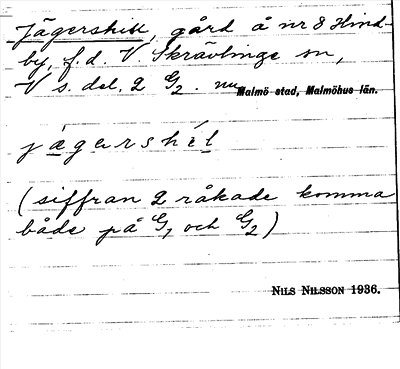 Jägershill, gård å nr 8 Hind-
by, f.d. V. Skrävlinge sn,
V s. del. 2 G/2. nu Malmö stad, Malmöhus län.
jǽgershíl
(siffran 2 råkade komma
både på G/1 och G/2)
NILS NILSSON 1936.